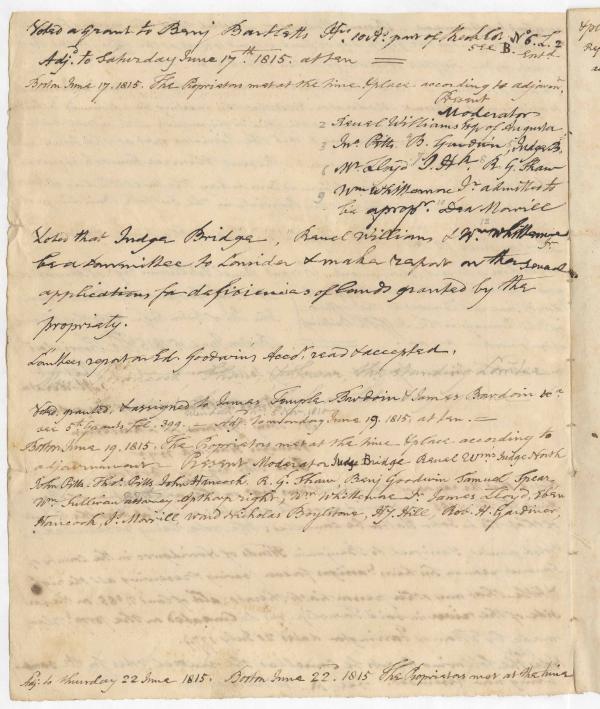 Voted a grant to Benj Bartletts Hrs 10 id. part of Neck lot No 6. L. 2
see B. Ent'd
Adjd to Saturday June 17th 1815. at ten
Boston June 17. 1815. The Proprietors met at the time & place according to adjournt.
Present
Moderator
2 Reuel Williams Esq of Augusta
3 Jno. Pitts B. Goodwin, Judge B.
6 Mr Lloyd T. H R. G. Shaw
8 Wm Whittemore Jr admitted to
9 be a propr. Dea Morrill
Voted that Judge Bridge, Reuel Williams & Wm Whittemore Jr
be a committee to Consider & make report on the several
applications for deficiencies of lands granted by the
propriety.
Comttees report on Ed. Goodwins Accot. read & accepted.
Voted, granted, & assigned to James Temple Bowdoin & James Bowdoin &ca
vid 5th Grants fol. 399. Adjd to monday June 19. 1815, at ten.
Boston June 19. 1815. The Proprietors met at the time & place according to
adjournment Present Moderator Judge Bridge Reuel Wms Judge North
John Pitts. Thos. Pitts John Hancock, R. G. Shaw, Benj Goodwin Samuel Spear
Wm Sullivan attorney right, Wm Whittemore Jr. James Lloyd, Eben
Hancock, J. Morrill, Ward Nicholas Boylstone, H. Hill, Rob. H. Gardiner,
Adj. to thursday 22 June 1815. Boston June 22. 1815 The Proprietors met at the time